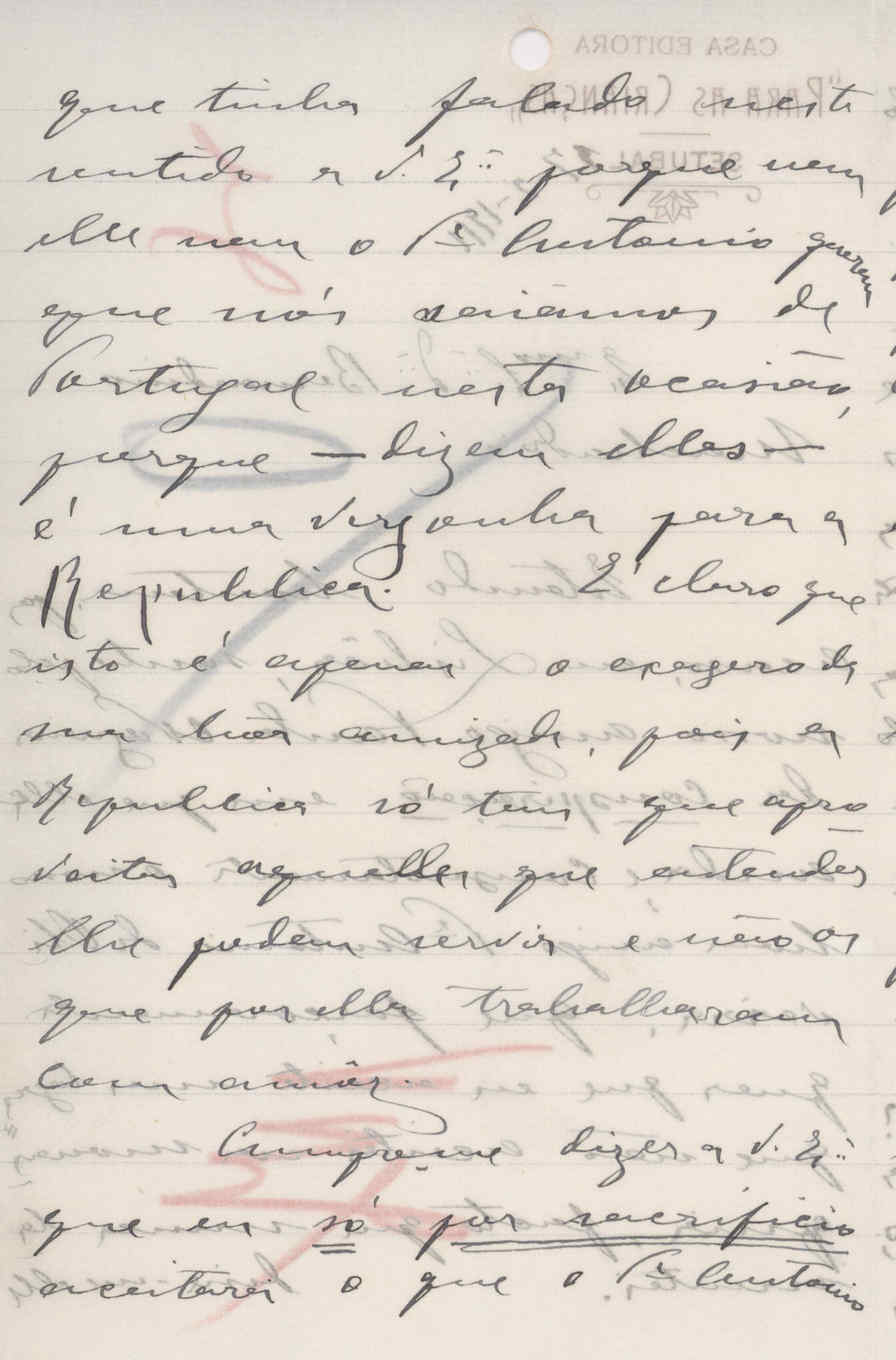 que tinha falado neste
sentido a V. Ex.ª porque nem
elle nem o Dr. Antonio querem
que nós saiâmos de
Portugal nesta ocasião,
porque — dizem elles —
é uma vergonha para a
Republica. É claro que
isto é apenas o exagero da
sua boa amizade, pois a
Republica só tem que apro
veitar aquelles que entender
lhe podem servir e não os
que por ella trabalharam
com amôr.
Cumpre-me dizer a V. Ex.ª
que eu só por sacrificio
aceitarei o que o Dr. Antonio